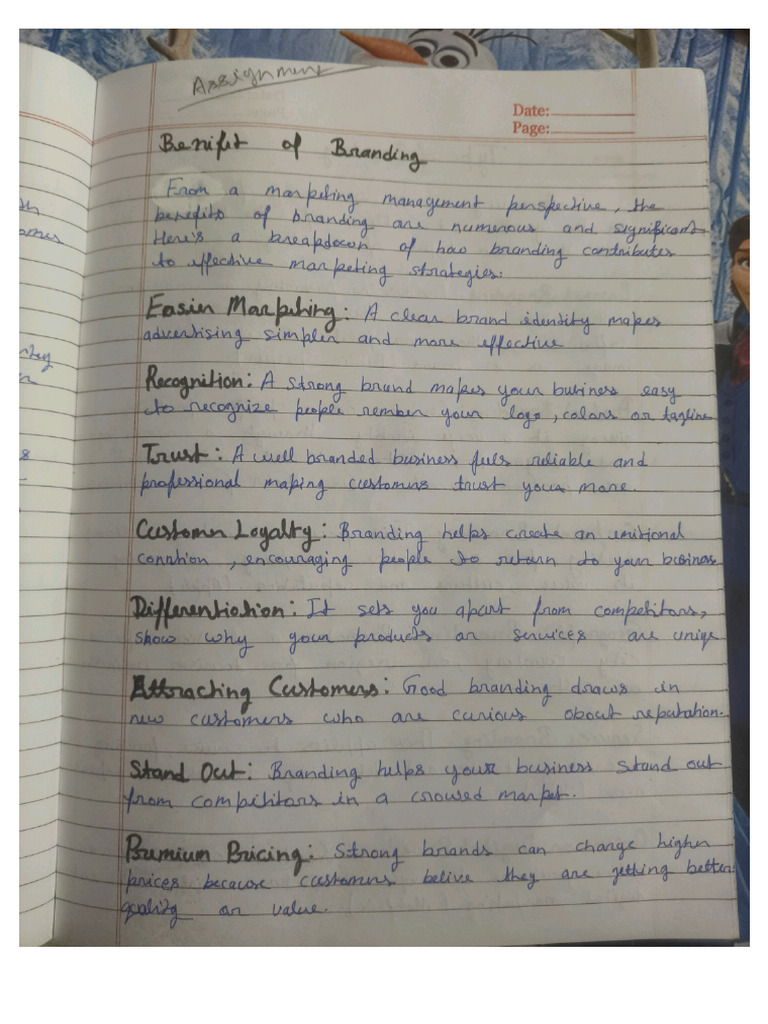 Assignment
Date:
Page:
Benifit of Branding
From a marketing management perspective, the
benefits of branding are numerous and significant
Here's a breakdown of how branding contributes
to effective marketing strategies.
Easier Marketing: A clear brand identity makes
advertising simpler and more effective
Recognition: A strong brand makes your business easy
to recognize people rember your logo, colors or tagline
Trust: A well branded business fuls reliable and
professional making customers trust your more.
Customer Loyalty: Branding helps create an emitional
conntion, encouraging people to return to your business
Differentiation: It sets you apart from competitors,
show why your products or services are uniqe
Attracting Customers: Good branding draws in
new customers who are curious about reputation.
Stand Out: Branding helps your business stand out
from compititors in a crowed market.
Primium Pricing: Strong brands can change higher
prices because customers belive they are getting better
quality or value.